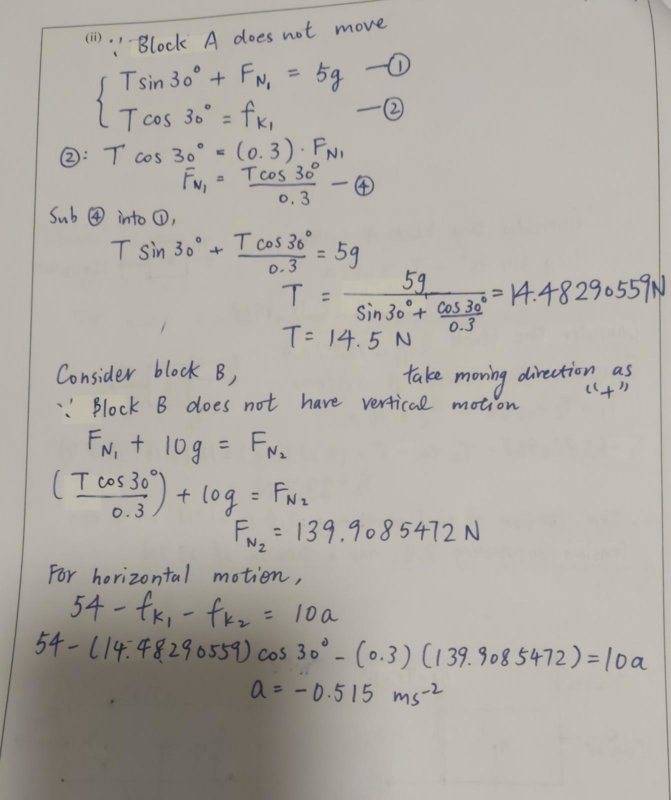 (ii) ∵ Block A does not move
{ T sin 30° + F_N₁ = 5g —①
T cos 30° = f_k₁ —②
②: T cos 30° = (0.3) · F_N₁
F_N₁ = T cos 30° / 0.3 —④
Sub ④ into ①,
T sin 30° + T cos 30° / 0.3 = 5g
T = 5g / (sin 30° + cos 30° / 0.3) = 14.48290559N
T = 14.5 N
Consider block B, take moving direction as "+"
∵ Block B does not have vertical motion
F_N₁ + 10g = F_N₂
(T cos 30° / 0.3) + 10g = F_N₂
F_N₂ = 139.9085472 N
For horizontal motion,
54 - f_k₁ - f_k₂ = 10a
54 - (14.48290559) cos 30° - (0.3)(139.9085472) = 10a
a = -0.515 ms⁻²